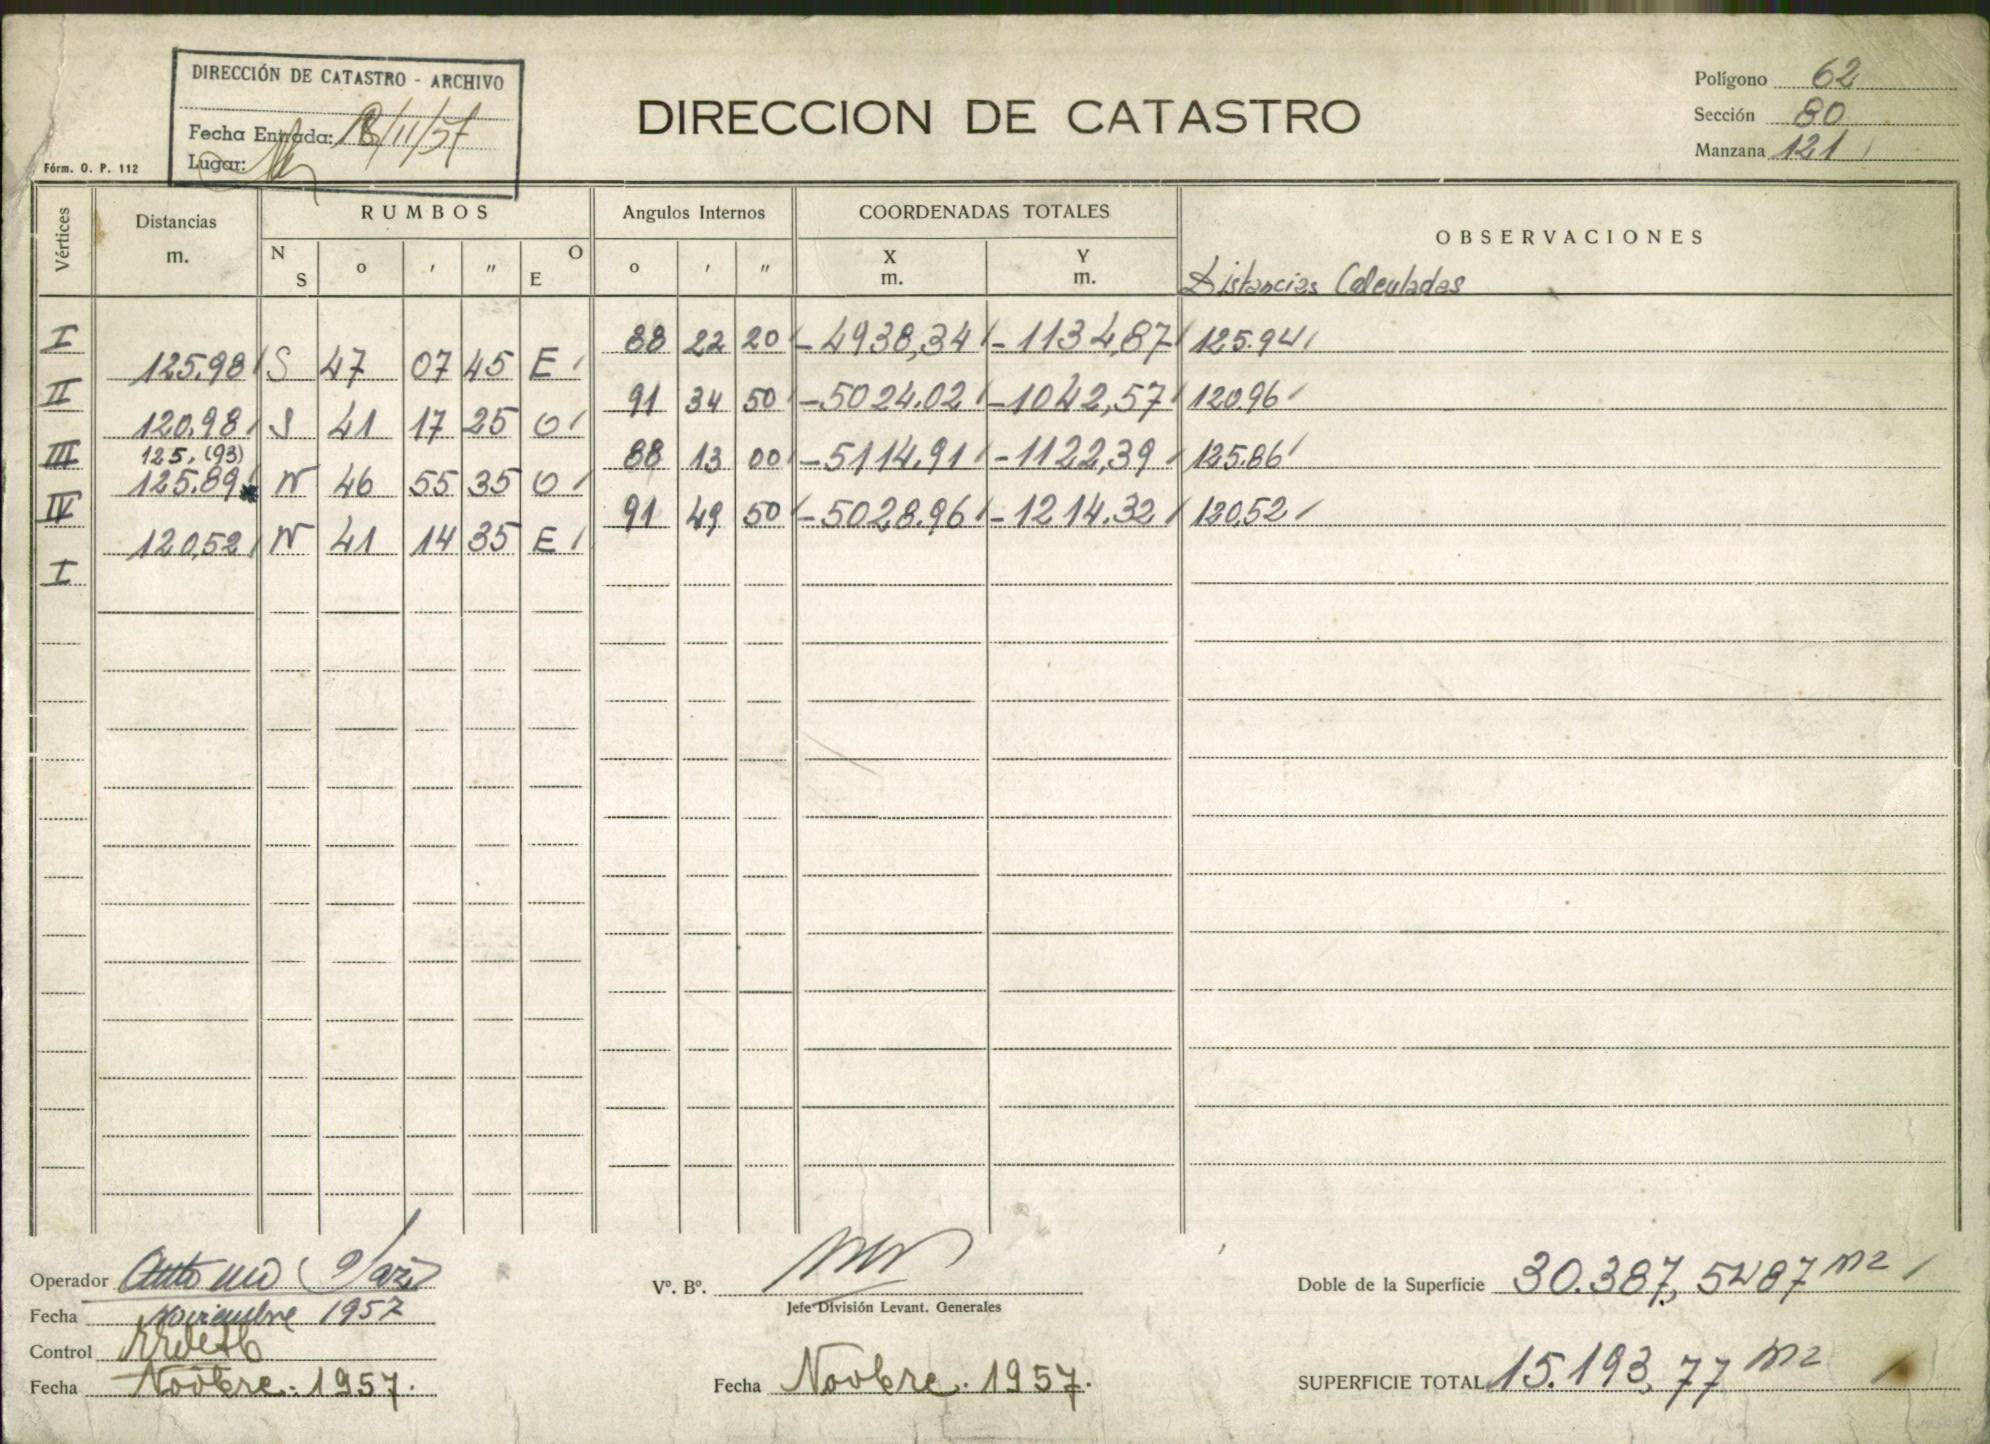 DIRECCIÓN DE CATASTRO - ARCHIVO
Fecha Entrada: 18/11/57
Lugar:
Fórm. O. P. 112
DIRECCION DE CATASTRO
Polígono 62
Sección 80
Manzana 121
Vértices Distancias m. RUMBOS N S o ' " E O Angulos Internos o ' " COORDENADAS TOTALES X m. Y m. OBSERVACIONES
Distancias Calculadas
I 88 22 20 -4938,34 -1134,87 125.94
125.98 S 47 07 45 E
II 91 34 50 -5024.02 -1042,57 120.96
120.98 S 41 17 25 O
III 125.(93) 88 13 00 -5114.91 -1122,39 125.86
125.89 N 46 55 35 O
IV 91 49 50 -5028.96 -1214.32 120,52
120,52 N 41 14 35 E
I
Operador
Fecha Noviembre 1957
Control
Fecha Novbre. 1957.
Vº. Bº.
Jefe División Levant. Generales
Fecha Novbre. 1957.
Doble de la Superficie 30.387,5487 m2
SUPERFICIE TOTAL 15.193,77 m2